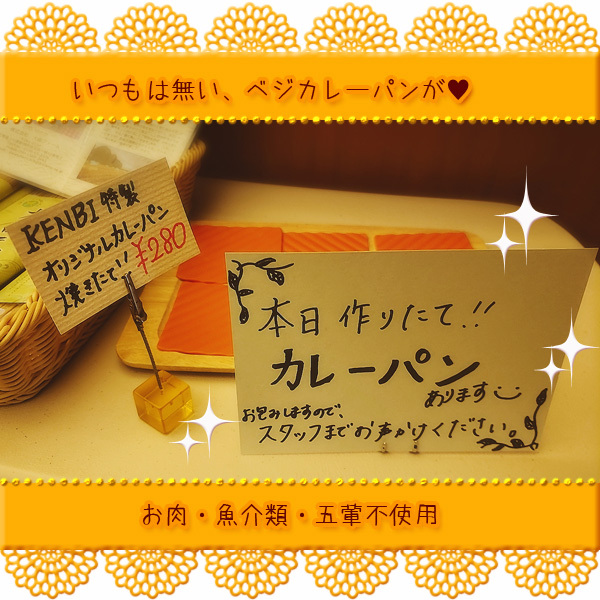 いつもは無い、ベジカレーパンが♥
KENBI特製
オリジナルカレーパン
焼きたて!! ¥280
本日作りたて!!
カレーパン
あります
お包みしますので、
スタッフまでお声かけください。
お肉・魚介類・五葷不使用